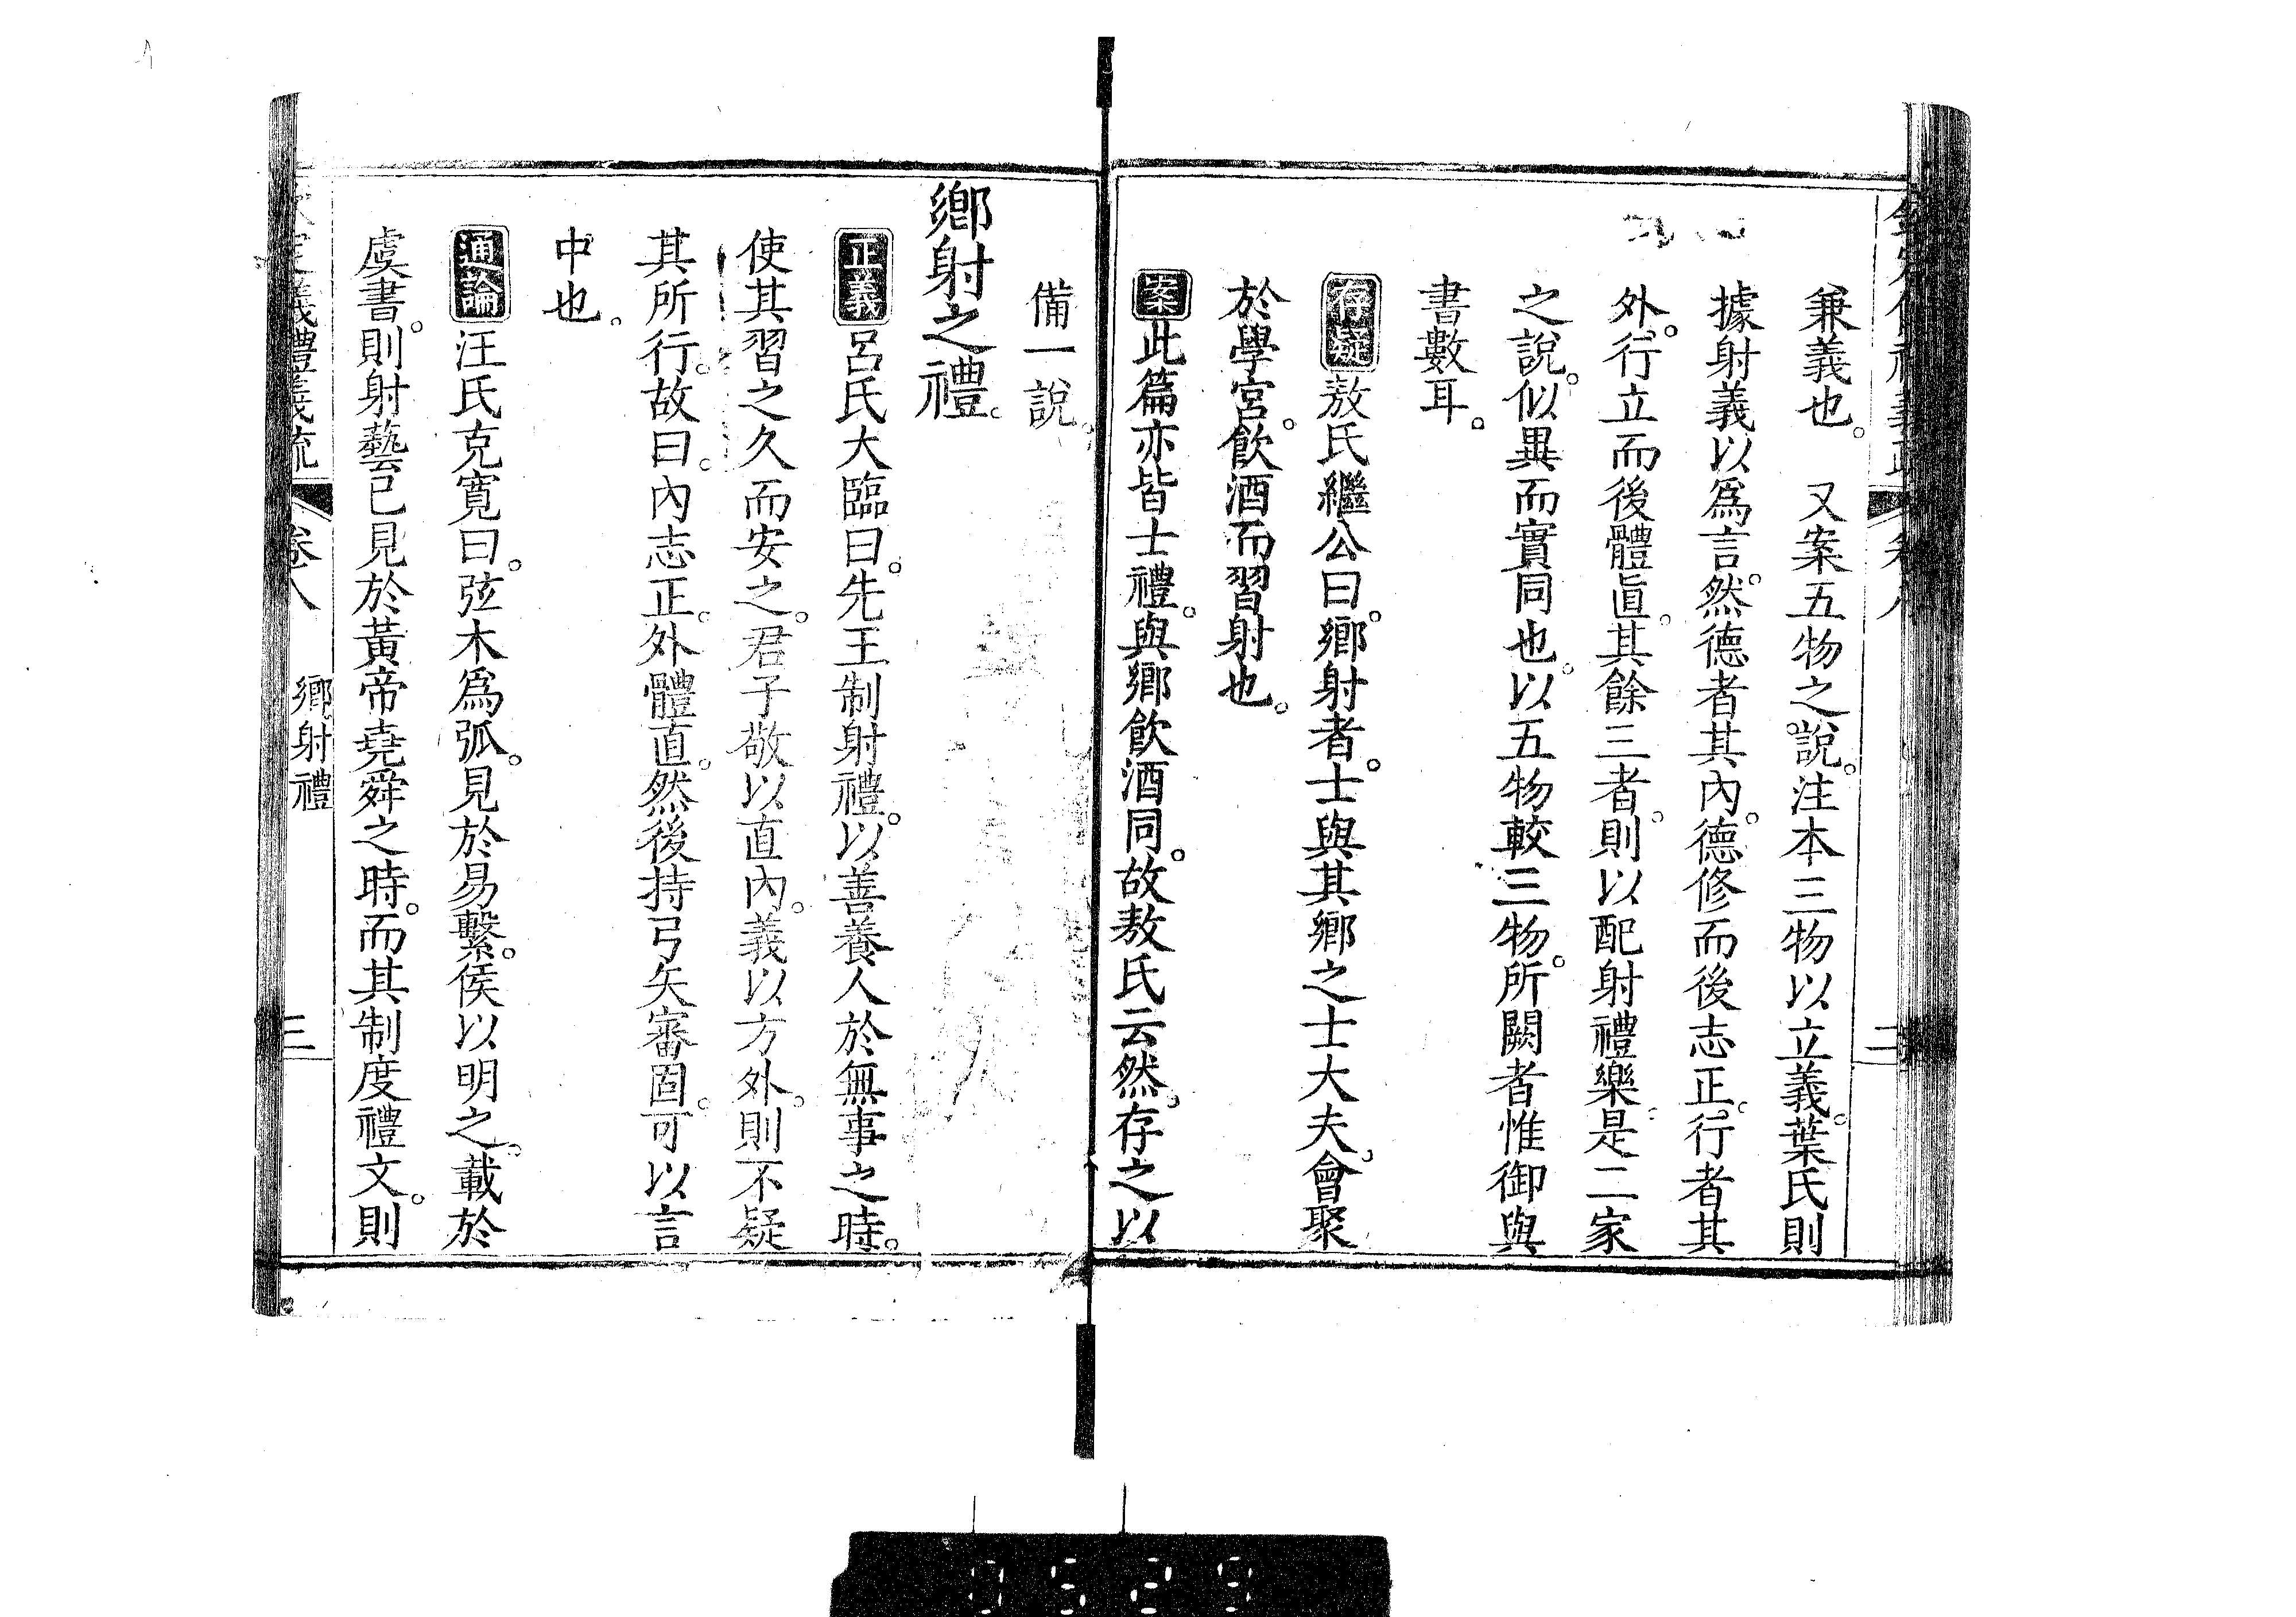 兼義也。　又案五物之說。注本三物以立義。葉氏則
據射義以爲言。然德者其內。德修而後志正。行者其
外。行立而後體直。其餘三者。則以配射禮樂。是二家
之說。似異而實同也。以五物較三物。所闕者惟御與
書數耳。
存疑敖氏繼公曰。鄉射者。士與其鄉之士大夫。會聚
於學宮。飲酒而習射也。
案此篇亦皆士禮。與鄉飲酒同。故敖氏云然。存之以
備一說。
鄉射之禮。
正義呂氏大臨曰。先王制射禮。以善養人於無事之時。
使其習之久而安之。君子敬以直內。義以方外。則不疑
其所行。故曰。內志正。外體直。然後持弓矢審固。可以言
中也。
通論汪氏克寬曰。弦木爲弧。見於易繫。侯以明之。載於
虞書。則射藝已見於黃帝堯舜之時。而其制度禮文。則
欽定儀禮義疏　卷八　鄉射禮　三